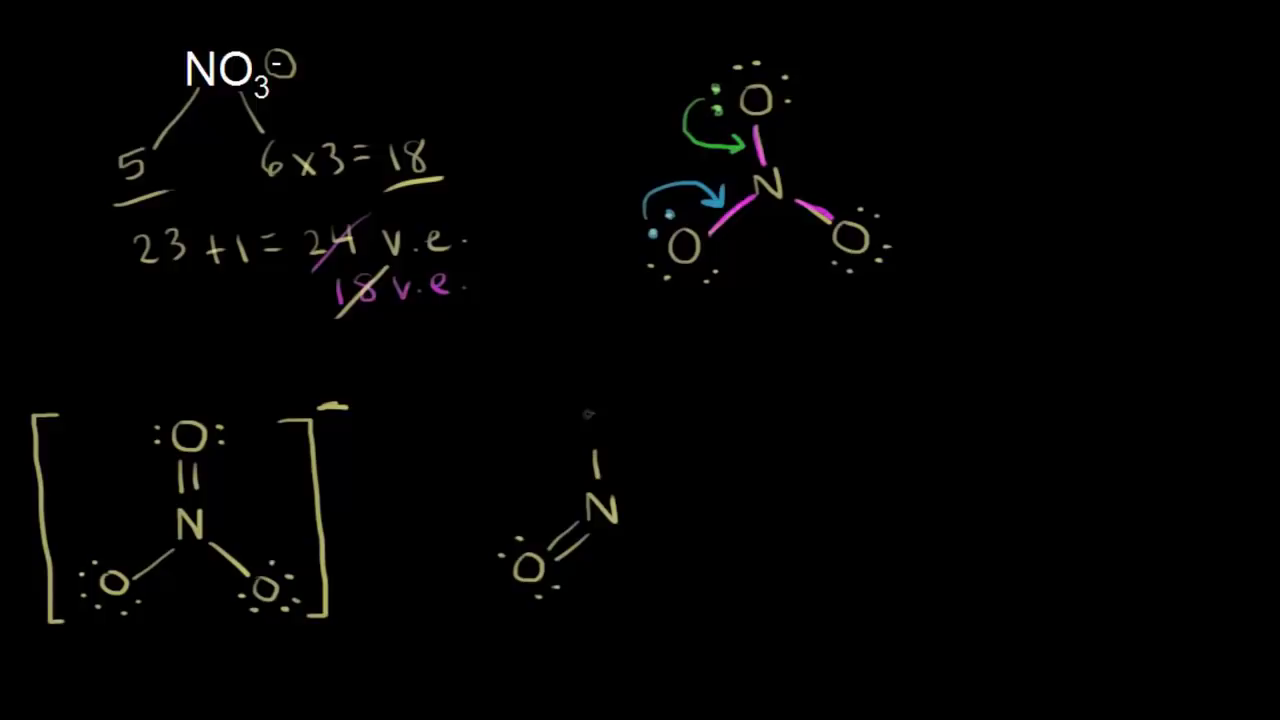 NO₃⁻
5 6 x 3 = 18
23 + 1 = 24 v.e.
18 v.e.
O
N
O O
O
N
O O
−
N
O